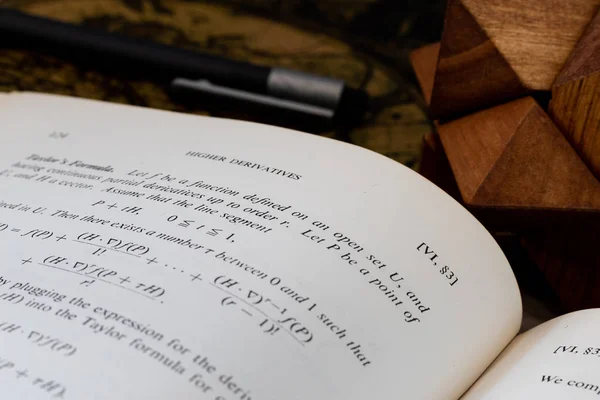 124
HIGHER DERIVATIVES
[VI, §3]
Taylor's Formula. Let f be a function defined on an open set U, and
having continuous partial derivatives up to order r. Let P be a point of
U, and H a vector. Assume that the line segment
P + tH, 0 ≦ t ≦ 1,
ned in U. Then there exists a number τ between 0 and 1 such that
) = f(P) + (H · ∇)f(P)/1! + ··· + (H · ∇)ʳ⁻¹f(P)/(r − 1)!
+ (H · ∇)ʳf(P + τH)/r!.
by plugging the expression for the deri
(H) into the Taylor formula for
(H · ∇)f(P)
(P + τH)
[VI, §3
We comp